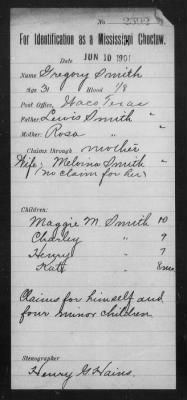 No. 2392
For Identification as a Mississippi Choctaw.
Date JUN 10 1901
Name Gregory Smith
Age 31 Blood 1/8
Post Office, Waco, Texas
Father, Lewis Smith "
Mother, Rosa "
Claims through mother
Wife, Melvina Smith "
(no claim for her)
Children:
Maggie M. Smith 10
Charley " 9
Henry " 7
Katt " 8mo.
Claims for himself and
four minor children
Stenographer
Henry G. Hains.